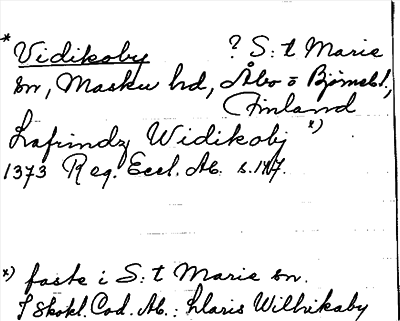 * Vidikoby ? S:t Marie
sn, Masku hd, Åbo o Björnebl.,
Finland
Lafrindz Widikobj x)
1373 Reg. Eccl. Ab. s. 187.
x) faste i S:t Marie sn.
I Skokl. Cod. Ab.: